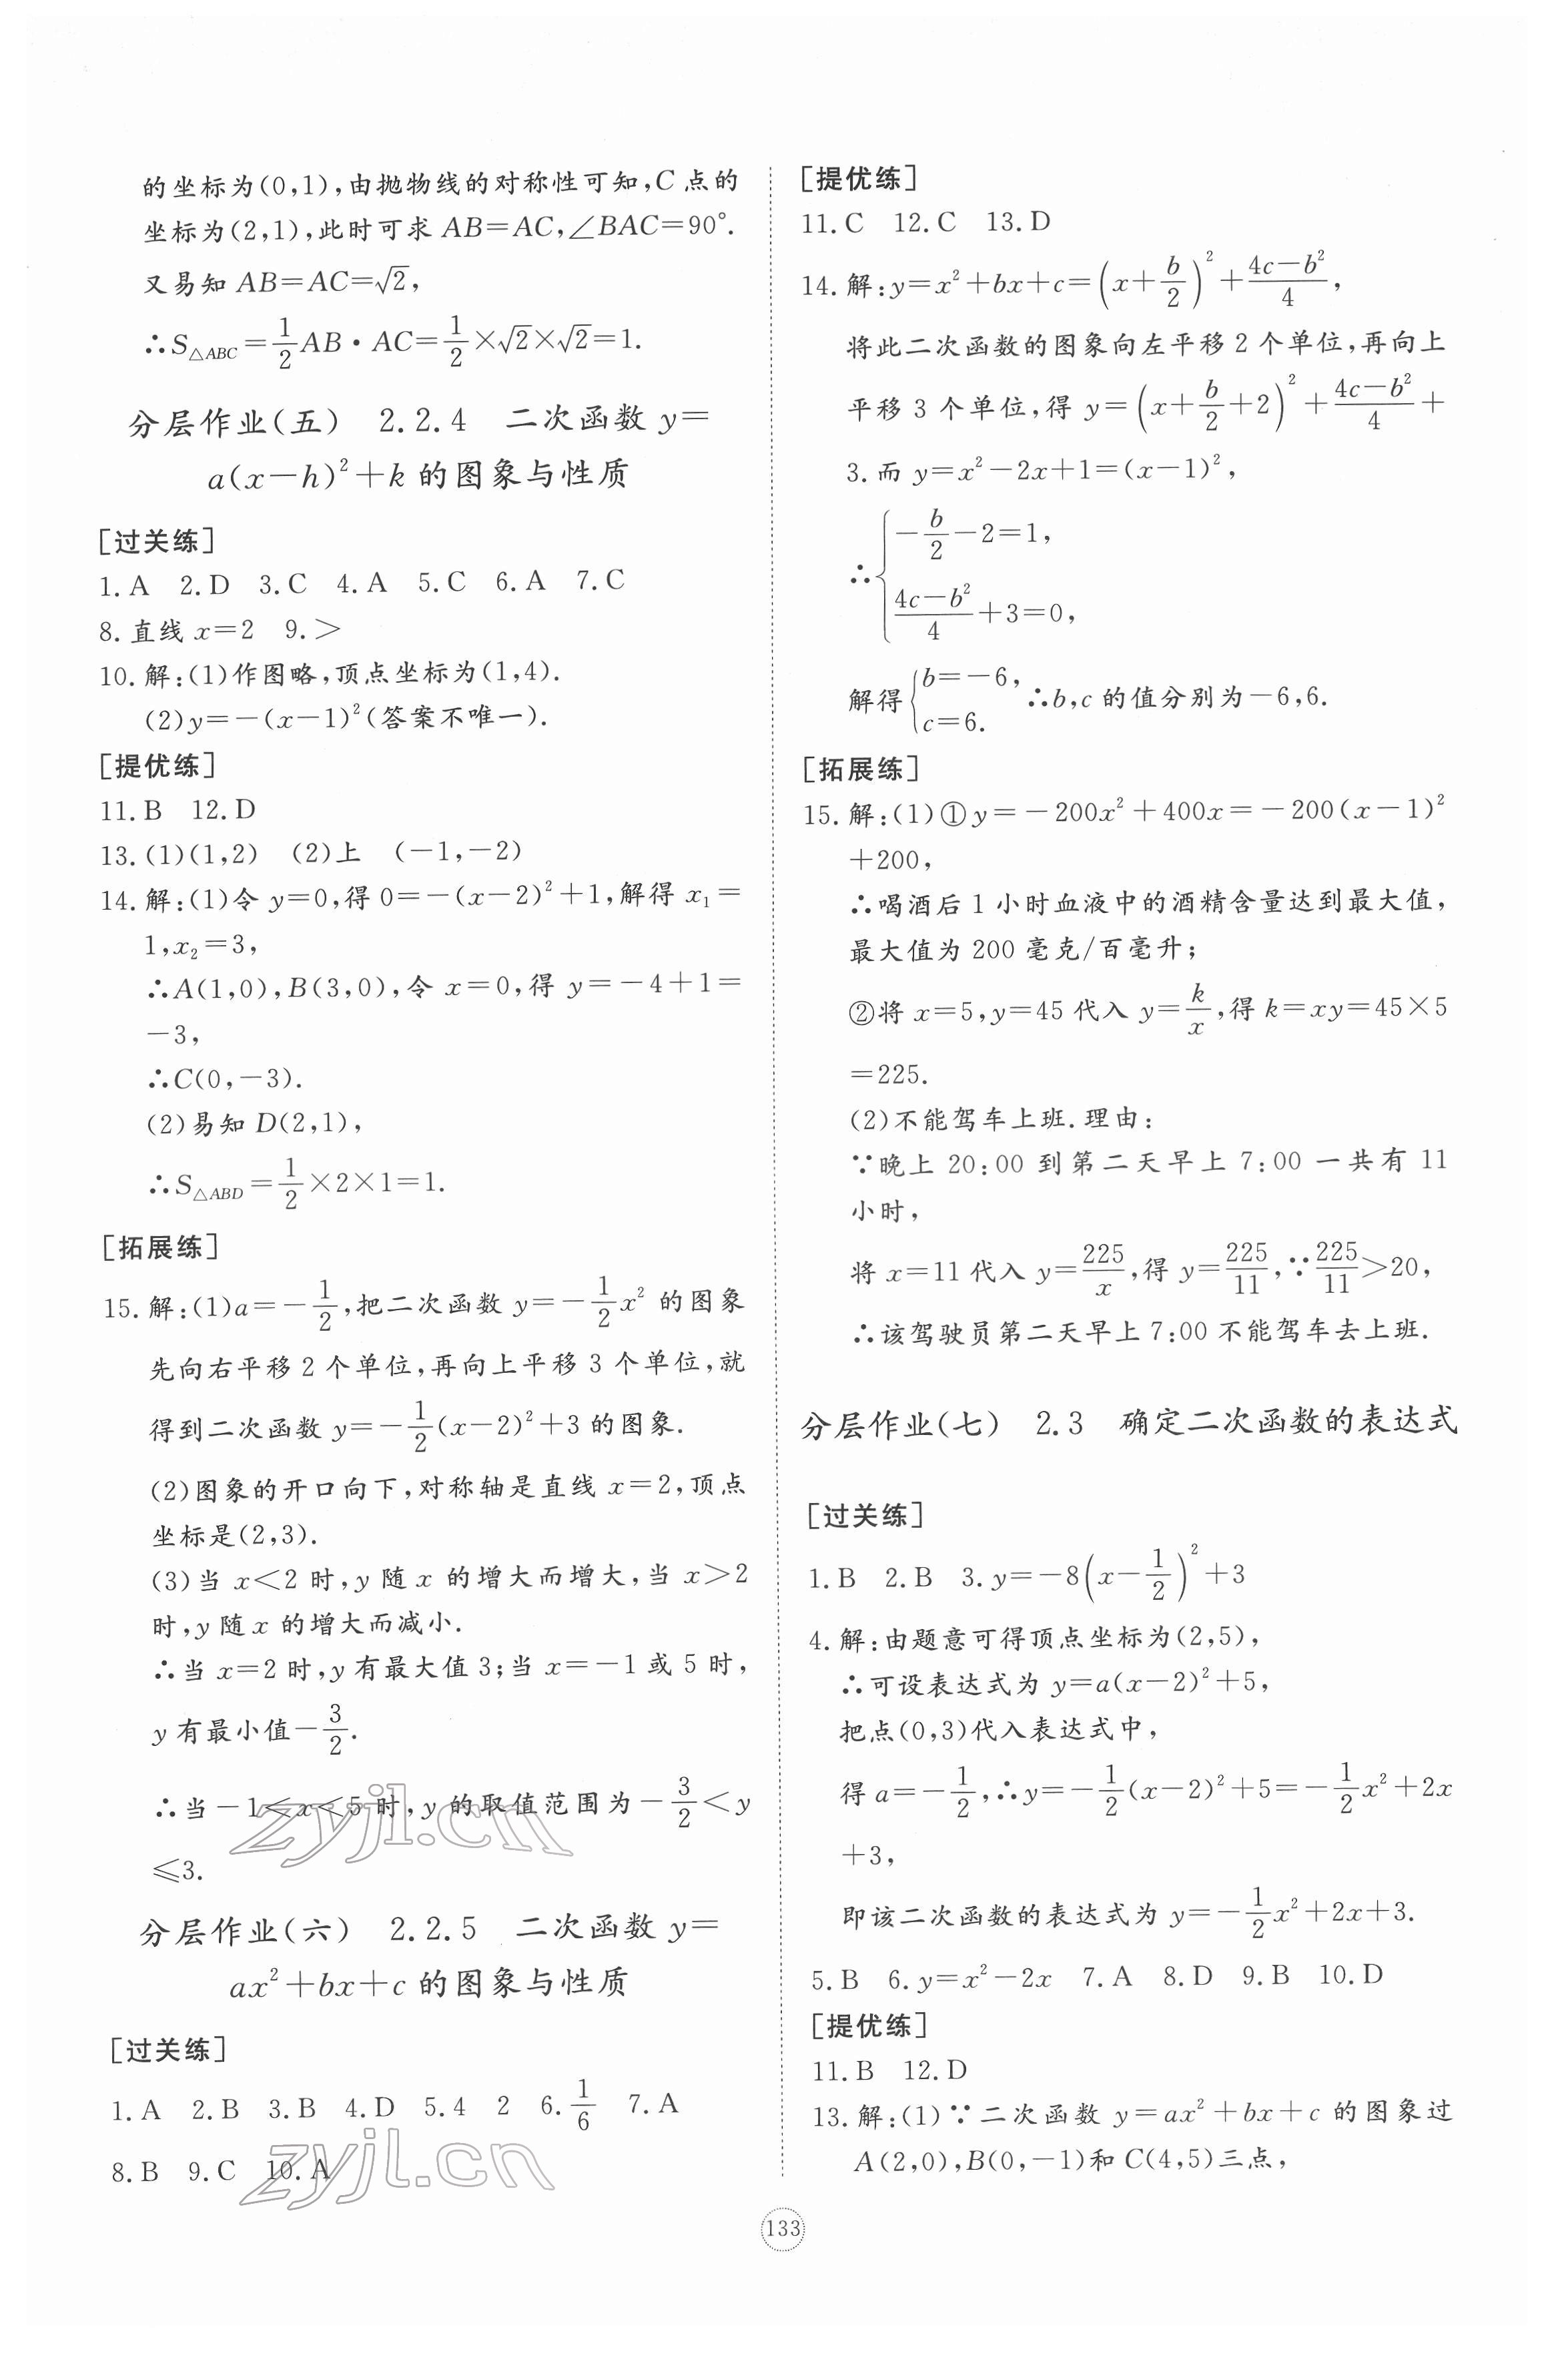 的坐标为(0,1),由抛物线的对称性可知,C 点的
坐标为(2,1),此时可求 AB=AC,∠BAC=90°.
又易知 AB=AC=√2,
∴S△ABC=1/2AB·AC=1/2×√2×√2=1.
分层作业(五) 2.2.4 二次函数 y=
a(x-h)²+k 的图象与性质
[过关练]
1.A 2.D 3.C 4.A 5.C 6.A 7.C
8.直线 x=2 9.>
10.解:(1)作图略,顶点坐标为(1,4).
(2)y=-(x-1)²(答案不唯一).
[提优练]
11.B 12.D
13.(1)(1,2) (2)上 (-1,-2)
14.解:(1)令 y=0,得 0=-(x-2)²+1,解得 x₁=
1,x₂=3,
∴A(1,0),B(3,0),令 x=0,得 y=-4+1=
-3,
∴C(0,-3).
(2)易知 D(2,1),
∴S△ABD=1/2×2×1=1.
[拓展练]
15.解:(1)a=-1/2,把二次函数 y=-1/2x² 的图象
先向右平移 2 个单位,再向上平移 3 个单位,就
得到二次函数 y=-1/2(x-2)²+3 的图象.
(2)图象的开口向下,对称轴是直线 x=2,顶点
坐标是(2,3).
(3)当 x<2 时,y 随 x 的增大而增大,当 x>2
时,y 随 x 的增大而减小.
∴当 x=2 时,y 有最大值 3;当 x=-1 或 5 时,
y 有最小值-3/2.
∴当-1<x<5 时,y 的取值范围为-3/2<y
≤3.
zyjl.cn
分层作业(六) 2.2.5 二次函数 y=
ax²+bx+c 的图象与性质
[过关练]
1.A 2.B 3.B 4.D 5.4 2 6.1/6 7.A
8.B 9.C 10.A
zyjl.cn
[提优练]
11.C 12.C 13.D
14.解:y=x²+bx+c=(x+b/2)²+(4c-b²)/4,
将此二次函数的图象向左平移 2 个单位,再向上
平移 3 个单位,得 y=(x+b/2+2)²+(4c-b²)/4+
3.而 y=x²-2x+1=(x-1)²,
∴{-b/2-2=1,
(4c-b²)/4+3=0,
解得{b=-6, c=6. ∴b,c 的值分别为-6,6.
[拓展练]
15.解:(1)①y=-200x²+400x=-200(x-1)²
+200,
∴喝酒后 1 小时血液中的酒精含量达到最大值,
最大值为 200 毫克/百毫升;
②将 x=5,y=45 代入 y=k/x,得 k=xy=45×5
=225.
(2)不能驾车上班.理由:
∵晚上 20:00 到第二天早上 7:00 一共有 11
小时,
将 x=11 代入 y=225/x,得 y=225/11,∵225/11>20,
∴该驾驶员第二天早上 7:00 不能驾车去上班.
分层作业(七) 2.3 确定二次函数的表达式
[过关练]
1.B 2.B 3.y=-8(x-1/2)²+3
4.解:由题意可得顶点坐标为(2,5),
∴可设表达式为 y=a(x-2)²+5,
把点(0,3)代入表达式中,
得 a=-1/2,∴y=-1/2(x-2)²+5=-1/2x²+2x
+3,
即该二次函数的表达式为 y=-1/2x²+2x+3.
5.B 6.y=x²-2x 7.A 8.D 9.B 10.D
[提优练]
11.B 12.D
13.解:(1)∵二次函数 y=ax²+bx+c 的图象过
A(2,0),B(0,-1)和 C(4,5)三点,
133